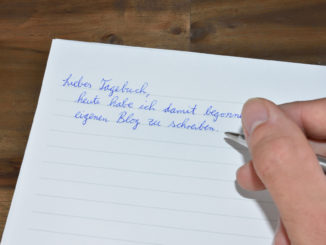 Liebes Tagebuch,
heute habe ich damit begonne
eigenen Blog zu schreiben.